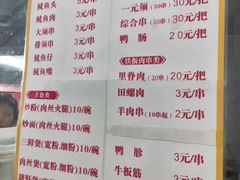 鱿鱼头 5元/串
鱿鱼肉 3元/串
大须串 3元/串
排须串 3元/串
鱿鱼仔 3元/串
鱿鱼嘴 3元/串
主食类
炒粉(肉丝火腿)10/碗
炒面(肉丝火腿)10/碗
三鲜煲(宽粉,细粉)10/碗
肉丝煲(宽粉,细粉)10/碗
一元须(30串)30元/把
综合串(30串)30元/把
鸭肠 20元/把
铁板肉串类
里脊肉(10串)20元/把
田螺肉 3元/串
羊肉串(10串起)2元/串
鸭胗 3元/串
牛板筋 3元/串